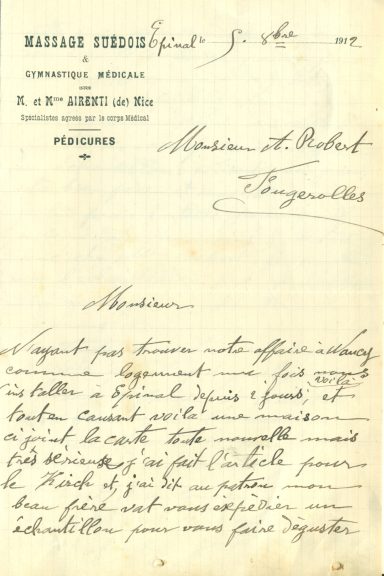 MASSAGE SUÉDOIS
&
GYMNASTIQUE MÉDICALE
M. et Mme AIRENTI (de) Nice
Spécialistes agréés par le corps Médical
PÉDICURES
Epinal le 5. 8bre 1912
Monsieur A. Robert
Fougerolles
Monsieur
N'ayant pas trouver notre affaire à Nancy
comme logement une fois nous
voilà
installer a Epinal depuis 2 jours, et
tout en causant voilà une maison
ci joint la carte toute nouvelle mais
très serieuse j'ai fait l'article pour
le Kirch et, j'ai dit au patron mon
beau frère vat vous expédier un
échantillon pour vous faire deguster